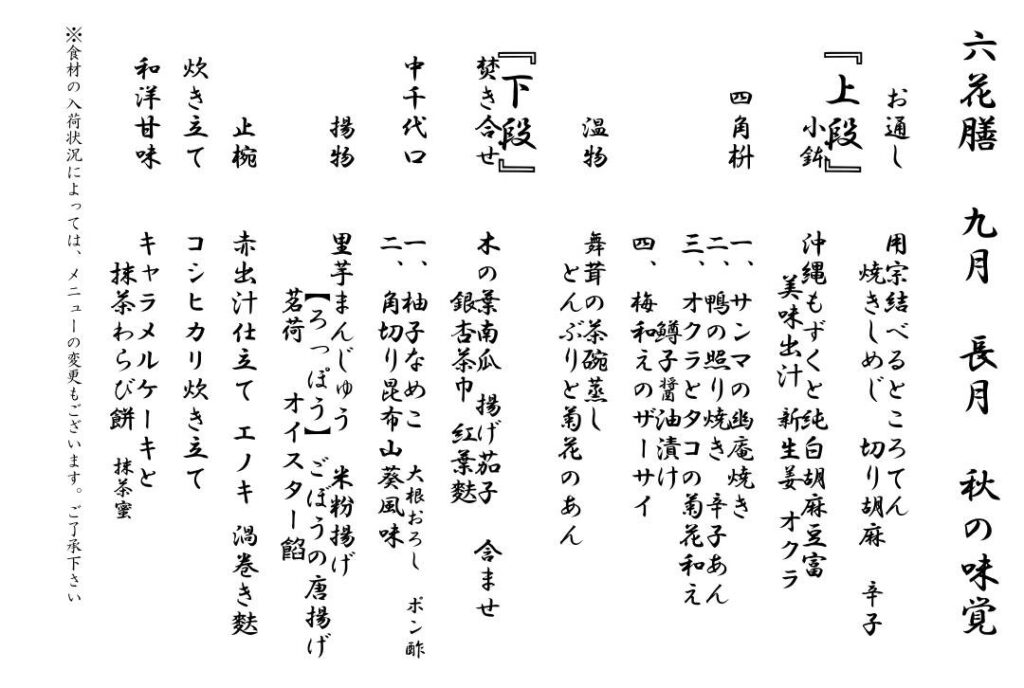 六花膳　九月　長月　秋の味覚
お通し　用宗結べるところてん
焼きしめじ　切り胡麻　辛子
『上段』
小鉢　沖縄もずくと純白胡麻豆富
美味出汁　新生姜　オクラ
四角枡　一、サンマの幽庵焼き
二、鴨の照り焼き　辛子あん
三、オクラとタコの菊花和え
鱒子醤油漬け
四、梅和えのザーサイ
温物　舞茸の茶碗蒸し
とんぶりと菊花のあん
『下段』
焚き合せ　木の葉南瓜　揚げ茄子　含ませ
銀杏茶巾　紅葉麩
中千代口　一、柚子なめこ　大根おろし　ポン酢
二、角切り昆布山葵風味
揚物　里芋まんじゅう　米粉揚げ
【ろっぽう】ごぼうの唐揚げ
茗荷　オイスター餡
止椀　赤出汁仕立て　エノキ　渦巻き麩
炊き立て　コシヒカリ炊き立て
和洋甘味　キャラメルケーキと
抹茶わらび餅　抹茶蜜
※食材の入荷状況によっては、メニューの変更もございます。ご了承下さい